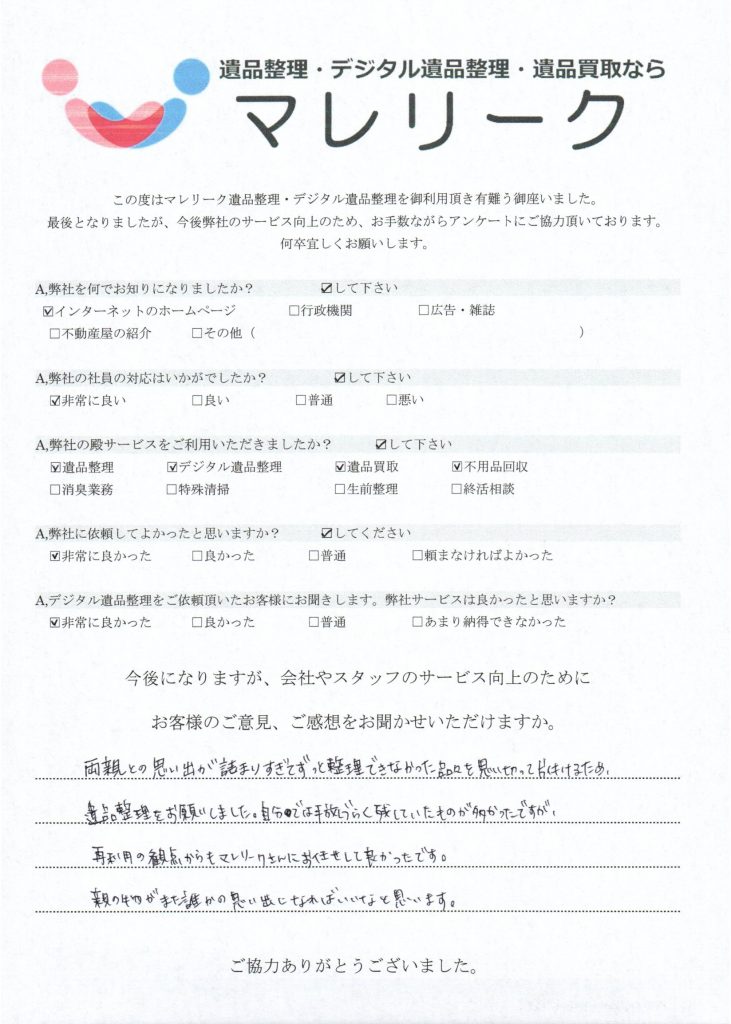 遺品整理・デジタル遺品整理・遺品買取なら
マレリーク
この度はマレリーク遺品整理・デジタル遺品整理を御利用頂き有難う御座いました。
最後となりましたが、今後弊社のサービス向上のため、お手数ながらアンケートにご協力頂いております。
何卒宜しくお願いします。
A,弊社を何でお知りになりましたか？ ☑して下さい
☑インターネットのホームページ □行政機関 □広告・雑誌
□不動産屋の紹介 □その他（ ）
A,弊社の社員の対応はいかがでしたか？ ☑して下さい
☑非常に良い □良い □普通 □悪い
A,弊社の殿サービスをご利用いただきましたか？ ☑して下さい
☑遺品整理 ☑デジタル遺品整理 ☑遺品買取 ☑不用品回収
□消臭業務 □特殊清掃 □生前整理 □終活相談
A,弊社に依頼してよかったと思いますか？ ☑してください
☑非常に良かった □良かった □普通 □頼まなければよかった
A,デジタル遺品整理をご依頼頂いたお客様にお聞きします。弊社サービスは良かったと思いますか？
☑非常に良かった □良かった □普通 □あまり納得できなかった
今後になりますが、会社やスタッフのサービス向上のために
お客様のご意見、ご感想をお聞かせいただけますか。
両親との思い出が詰まりすぎてずっと整理できなかった品々を思い切って片付けるため、
遺品整理をお願いしました。自分では手放しづらく残していたものが多かったですが、
再利用の観点からもマレリークさんにお任せして良かったです。
親の物がまた誰かの思い出になればいいなと思います。
ご協力ありがとうございました。